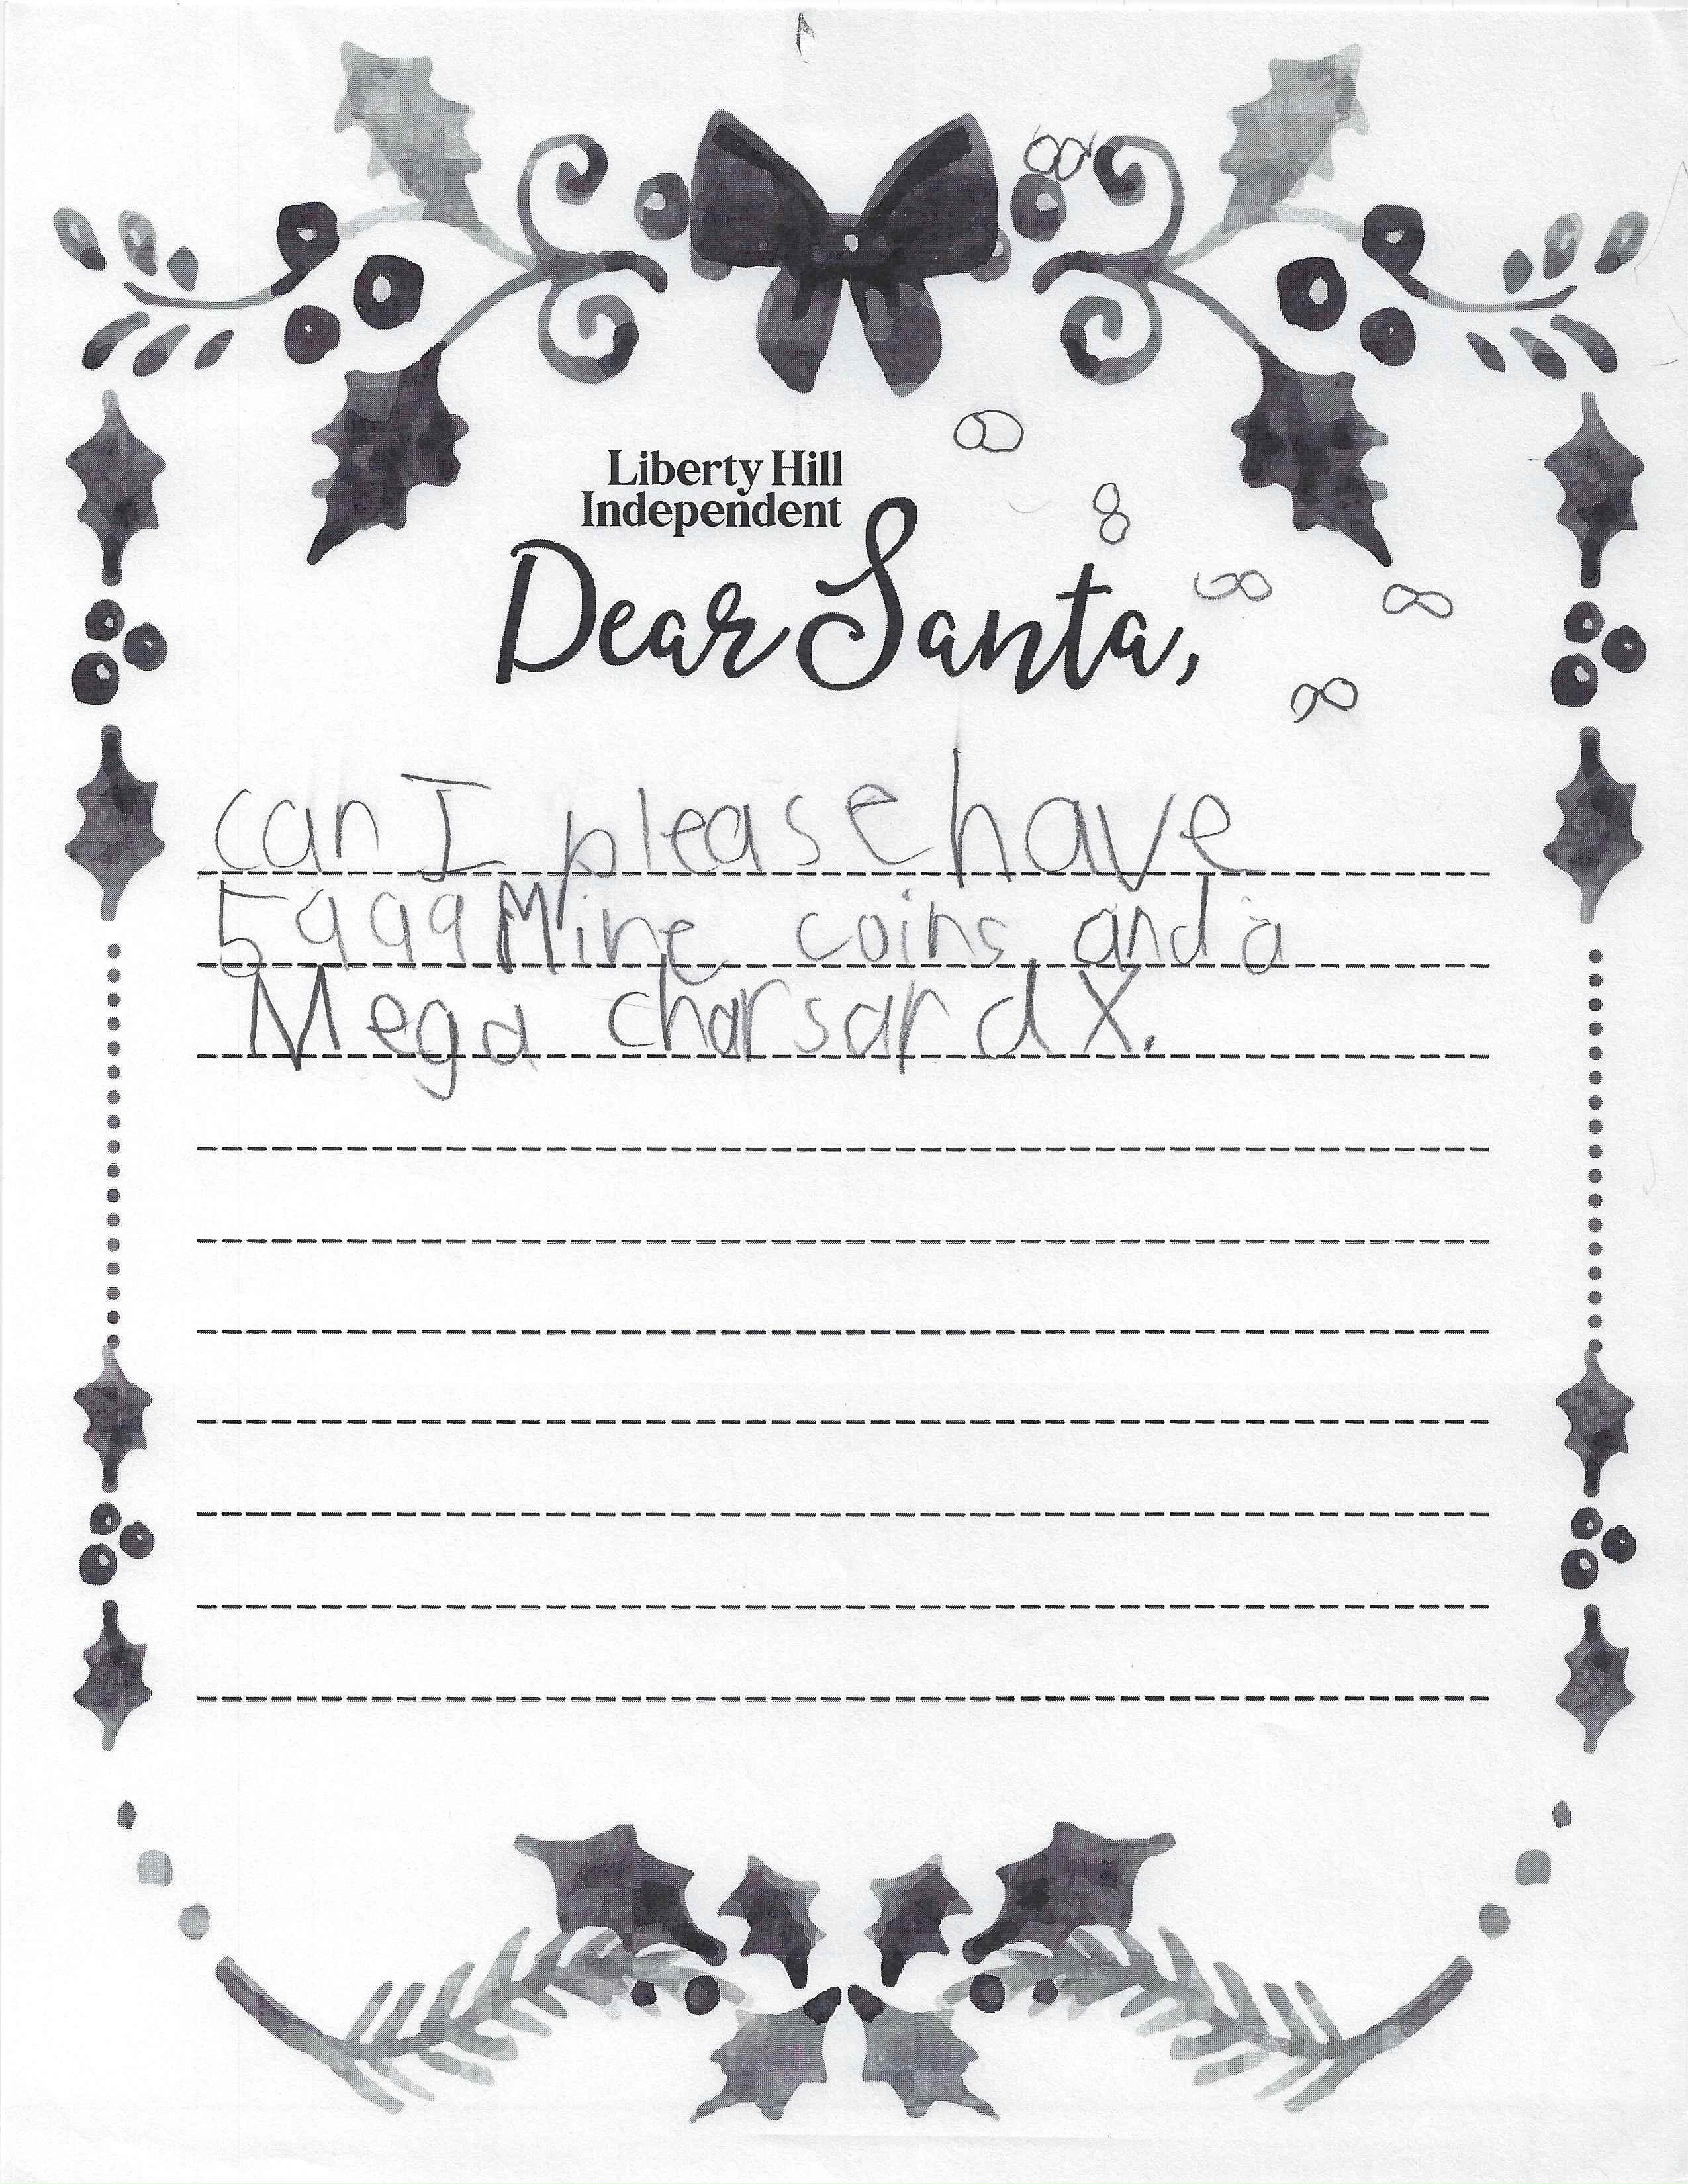 Liberty Hill
Independent
Dear Santa,
can I please have
5999 Mine coins and a
Mega charsard X.